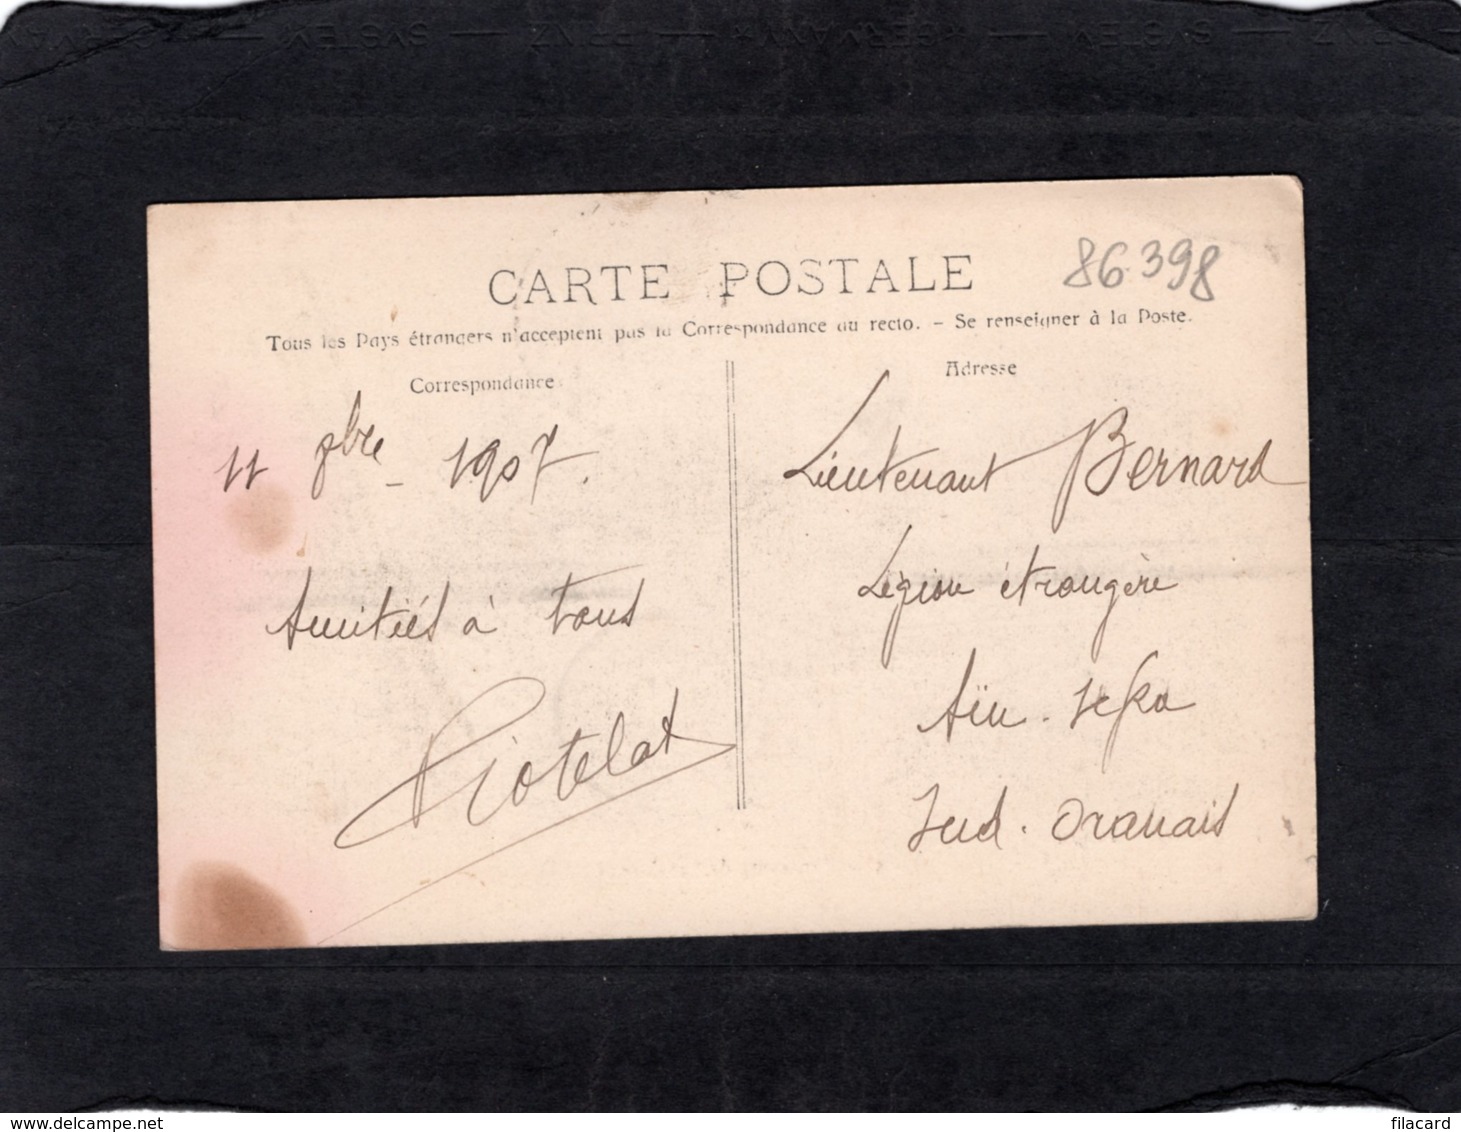 CARTE POSTALE
86398
Tous les Pays étrangers n'acceptent pas la Correspondance au recto. - Se renseigner à la Poste.
Correspondance
11 9bre - 1907.
Amitiés à tous
Piotelat
Adresse
Lieutenant Bernard
Légion étrangère
Aïn-Sefra
Sud-Oranais
filacard.com